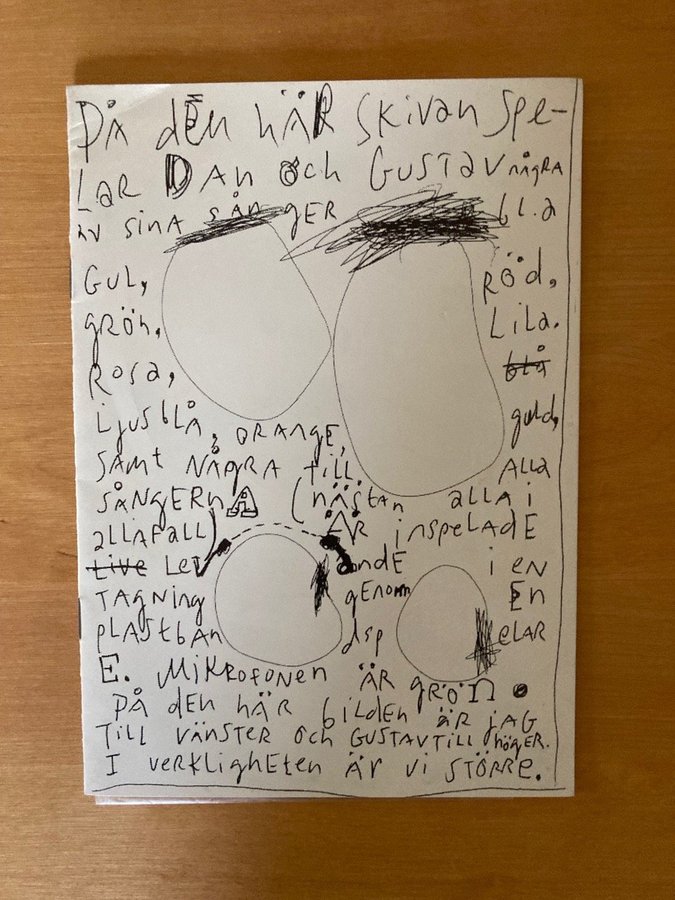 PÅ dEN HÄR SKivan SPE-
LAR DAN och GUSTAV NÅGRA
AV SINA SÅNGER bl.a
GUL, RÖD,
GRÖN, LILA.
ROSA, blå
LJUSBLÅ, ORANGE, guld,
SAMT NÅGRA TILL. ALLA
SÅNGERNA (NÄSTAN alla i
allafall) ÄR iNSPELADE
Live LEVANDE i EN
TAGNING genom EN
PLASTBANDSPELAR
E. MIKROFONEN ÄR GRÖN.
PÅ dEN HÄR bILDEN ÄR JAG
TILL VÄNSTER och GUSTAV TILL höger.
I verkligheten är vi STÖRRE.